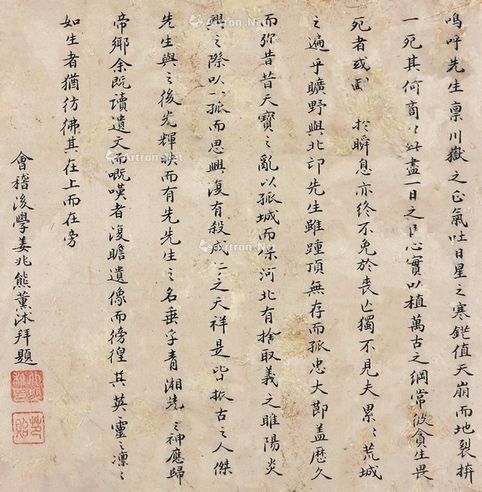 嗚呼先生稟川嶽之正氣吐日星之寒鋩值天崩而地裂拚
一死其何商以好盡一日之臣心實以植萬古之綱常彼貪生畏
死者或 於瞬息亦終不免於喪亡獨不見夫累〻荒城
之遍乎曠野與北邙先生雖踵頂無存而孤忠大節蓋歷久
而弥昔昔天寶之亂以孤城而保河北有捨取義之睢陽炎
興之際以孤而思興復有殺成仁之天祥是皆振古之人傑
先生與之後光輝映而有先先生之名垂乎青湘先生之神應歸
帝鄉余既讀遺文而嘅嘆者復瞻遺像而徬徨其英靈之凜〻
如生者猶彷彿其在上而在旁
會稽後學姜兆熊薰沐拜題